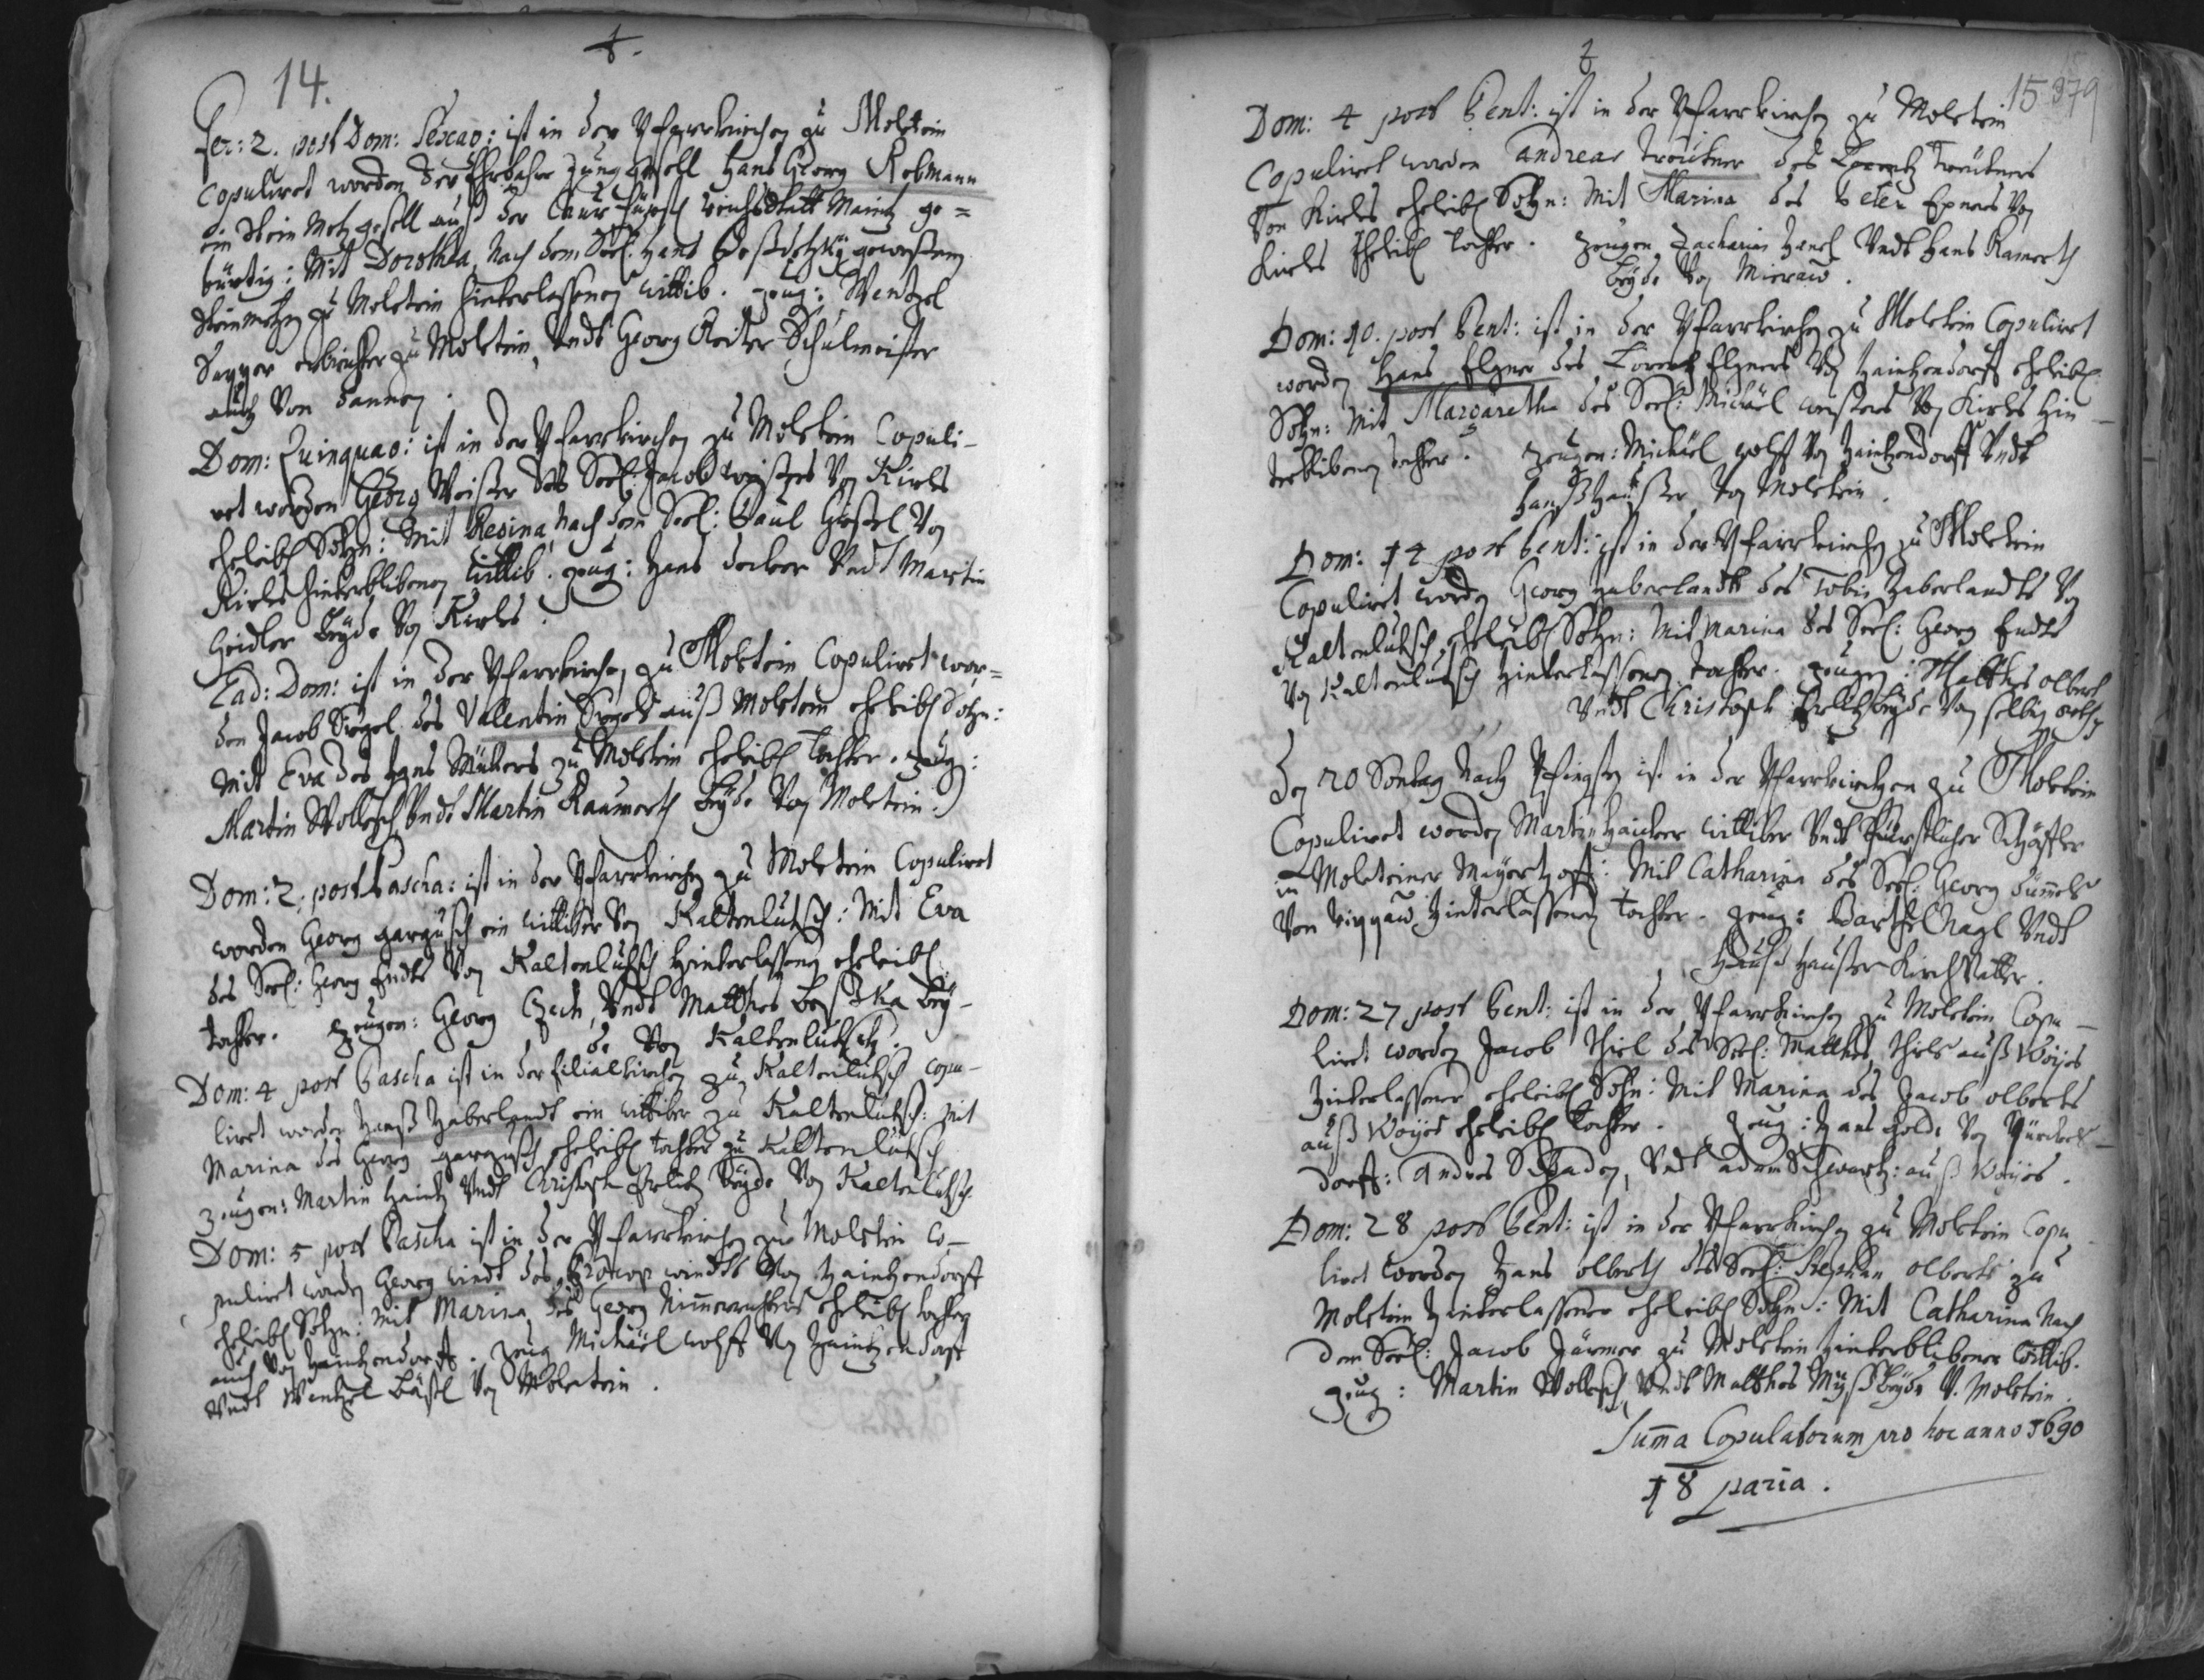 14.
Fer: 2. post Dom: Sexag: ist in der Pfarrkirchen zu Moletein
Copuliret worden der Ehrbahre Junggesell Hans Georg Rebmann
ein Stein Metz gesell auß der Chur fürstl Reichsstatt Maintz ge=
bürtig: Mit Dorothea, Nach dem Seel: Hans gewesenen
Steinmetzen zu Moletein hinterlassenen wittib. Zeug: Wentzel
Sayger erbrichter zu Moletein, Undt Georg Reiter Schulmeister
auch Von dannen.
Dom: Quinquag: ist in der Pfarrkirchen zu Moletein Copuli-
ret worden Georg Weisser des Seel: Jacob Weissers Von Kirles
eheleibl Sohn: Mit Regina, Nach dem Seel: Paul Von
Kirles hinterblibenen Wittib. Zeug: Hans Undt Martin
Heidler beyde Von Kirles.
Ead: Dom: ist in der Pfarrkirchen zu Moletein Copuliret wor=
den Jacob Sigel des Valentin Sigels auß Moletein eheleibl Sohn:
Mit Eva des Hans Müllers zu Moletein eheleibl Tochter. Zeug:
Martin Undt Martin Raumerth beyde Von Moletein.
Dom: 2. post Pascha: ist in der Pfarrkirchen zu Moletein Copuliret
worden Georg gargusch ein wittiber Von Kaltenlutsch: Mit Eva
des Seel: Georg Endts Von Kaltenlutsch Hinterlassenen eheleibl
Tochter. Zeugen: Georg Czech, Undt Matthes bey-
de Von Kaltenlutsch.
Dom: 4 post Pascha ist in der filialkirchen zu Kaltenlutsch copu-
liret worden Hanß Haberlandt ein wittiber zu Kaltenlutsch: Mit
Marina des Georg gargusch eheleibl Tochter zu Kaltenlutsch
Zeugen: Martin Haintz Undt Christoph beyde Von Kaltenlutsch.
Dom: 5 post Pascha ist in der Pfarrkirchen zu Moletein Co-
puliret worden Georg windt des Procop windts Von Haintzendorff
eheleibl Sohn: Mit Marina des Georg eheleibl Tochter
auch Von Haintzendorff. Zeug Michäel Wolff Von Haintzendorff
Undt Wentzel Von Moletein.
15 379
Dom: 4 post Pent: ist in der Pfarrkirchen zu Moletein
Copuliret worden Andreas Treutner des Lorentz Treutners
Von Kirles eheleibl Sohn: Mit Marina des Peter Von
Kirles Eheleibl Tochter. Zeugen Zacharias Hanel Undt Hans Ramerth
beyde Von Mierau.
Dom: 10. post Pent: ist in der Pfarrkirchen zu Moletein Copuliret
worden Hans Elgner des Lorentz Elgners Von Haintzendorff eheleibl
Sohn: Mit Margaretha des Seel: Michäel Von Kirles Hin-
terblibenen Tochter. Zeugen: Michäel Wolff Von Haintzendorff Undt
Hanß Haußer Von Moletein.
Dom: 14 post Pent: ist in der Pfarrkirchen zu Moletein
Copuliret worden Georg Haberlandt des Tobis Haberlandts Von
Kaltenlutsch eheleibl Sohn: Mit Marina des Seel: Georg Endts
Von Kaltenlutsch Hinterlassenen Tochter. Zeugen: Matthes olberth
Undt Christoph beyde Von selbig orth
Den 20 Sontag Nach Pfingsten ist in der Pfarrkirchen zu Moletein
Copuliret worden Martin Haicker wittiber Undt Fürstlicher Schäffler
in Moleteiner Mayerhoff: Mit Catharina des Seel: Georg
Von Hinterlassenen Tochter. Zeug: Barthel Nagl Undt
Hanß Haußer KirchVatter.
Dom: 27 post Pent: ist in der Pfarrkirchen zu Moletein Copu-
liret worden Jacob Thiel des Seel: Matthes Thiels auß
Hinterlassener eheleibl Sohn: Mit Marina des Jacob olberts
auß eheleibl Tochter. Zeug: Hans Von
dorff: Andres Undt Adam Schwartz: auß
Dom: 28 post Pent: ist in der Pfarrkirchen zu Moletein Copu
liret worden Hans olberth des Seel: Stephan olberts zu
Moletein Hinterlassener eheleibl Sohn: Mit Catharina Nach
dem Seel: Jacob zu Moletein Hinterblibener Wittib.
Zeug: Martin Undt Matthes beyde V. Moletein.
Suma Copulatorum pro hoc anno 1690
18 paria.